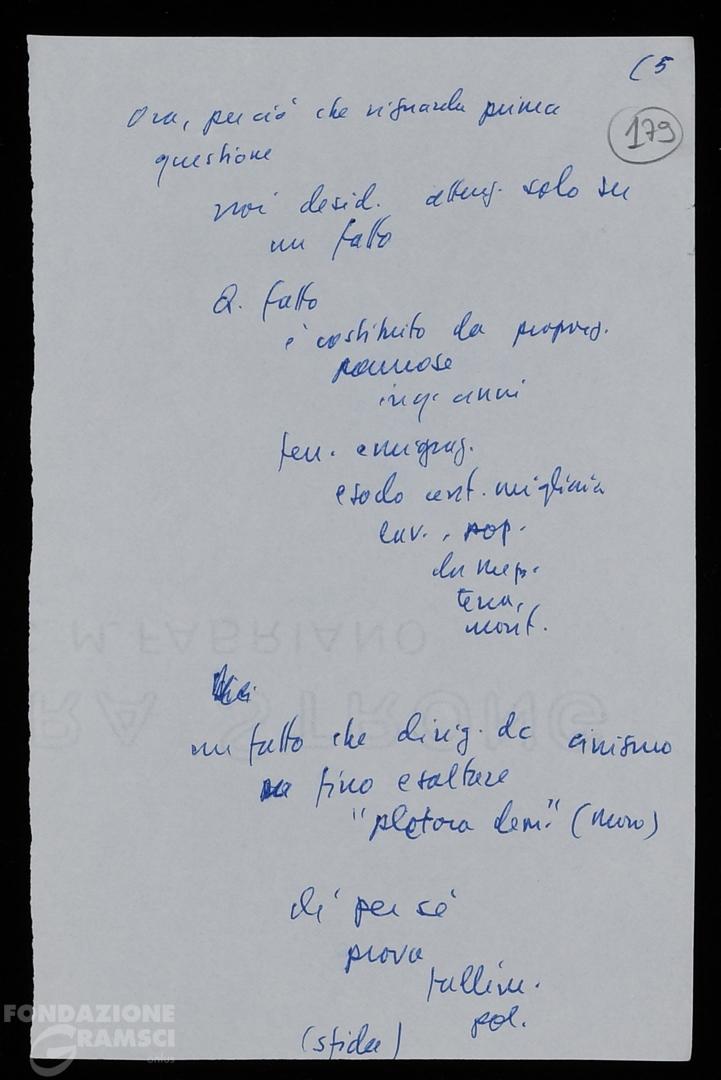 (5
179
Ora, per ciò che riguarda prima
questione
noi desid. atteng. solo su
un fatto
Q. fatto
è costituito da proporz.
paurose
anni
fen. emigraz.
esodo cent. migliaia
lav. pop.
da mezz.
terra,
mont.
un fatto che dirig. dc cinismo
fino esaltare
"pletora dem." (Moro)
di per sé
prova
fallim.
pol.
(sfida)
M. FABRIANO
RA STRONG
FONDAZIONE
GRAMSCI
onlus